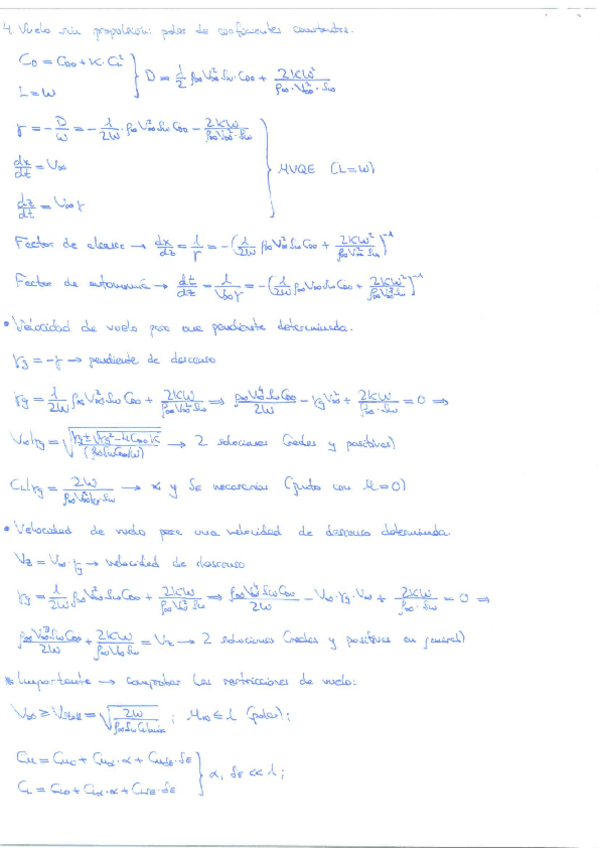 4. Vuelo sin propulsión: polar de coeficientes constantes.
C_D = C_D0 + K·C_L² } D = 1/2 ρ∞V∞²·Sw·C_D0 + 2KW²/(ρ∞·V∞²·Sw)
L = W
γ = -D/W = -1/(2W)·ρ∞V∞²Sw C_D0 - 2KW/(ρ∞V∞²·Sw)
dx/dt = V∞ } MVQE (L=W)
dz/dt = V∞γ
Factor de alcance → dx/dz = 1/γ = -(1/(2W) ρ∞V∞²Sw C_D0 + 2KW²/(ρ∞V∞²Sw))⁻¹
Factor de autonomía → dt/dz = 1/(V∞γ) = -(1/(2W) ρ∞V∞Sw C_D0 + 2KW²/(ρ∞V∞³Sw))⁻¹
• Velocidad de vuelo para una pendiente determinada.
γg = -γ → pendiente de descenso
γg = 1/(2W) ρ∞V∞²Sw C_D0 + 2KW/(ρ∞V∞²Sw) ⇒ ρ∞V∞⁴Sw C_D0/(2W) - γg V∞² + 2KW/(ρ∞·Sw) = 0 ⇒
V∞|γg = √((γg ± √(γg² - 4C_D0 K))/(ρ∞Sw C_D0/W)) → 2 soluciones (reales y positivas)
C_L|γg = 2W/(ρ∞V∞²|γg·Sw) → α y δe necesarias (junto con M=0)
• Velocidad de vuelo para una velocidad de descenso determinada.
Vz = V∞·γg → velocidad de descenso
γg = 1/(2W) ρ∞V∞²Sw C_D0 + 2KW/(ρ∞V∞²Sw) ⇒ ρ∞V∞⁴Sw C_D0/(2W) - V∞·γg·V∞ + 2KW/(ρ∞·Sw) = 0 ⇒
ρ∞V∞³Sw C_D0/(2W) + 2KW/(ρ∞V∞Sw) = Vz → 2 soluciones (reales y positivas en general)
* Importante → comprobar las restricciones de vuelo:
V∞ ≥ Vstall = √(2W/(ρ∞Sw C_Lmax)); M∞ ≤ 1 (polar);
C_M = C_M0 + C_Mα·α + C_MδE·δE } α, δE << 1;
C_L = C_L0 + C_Lα·α + C_LδE·δE